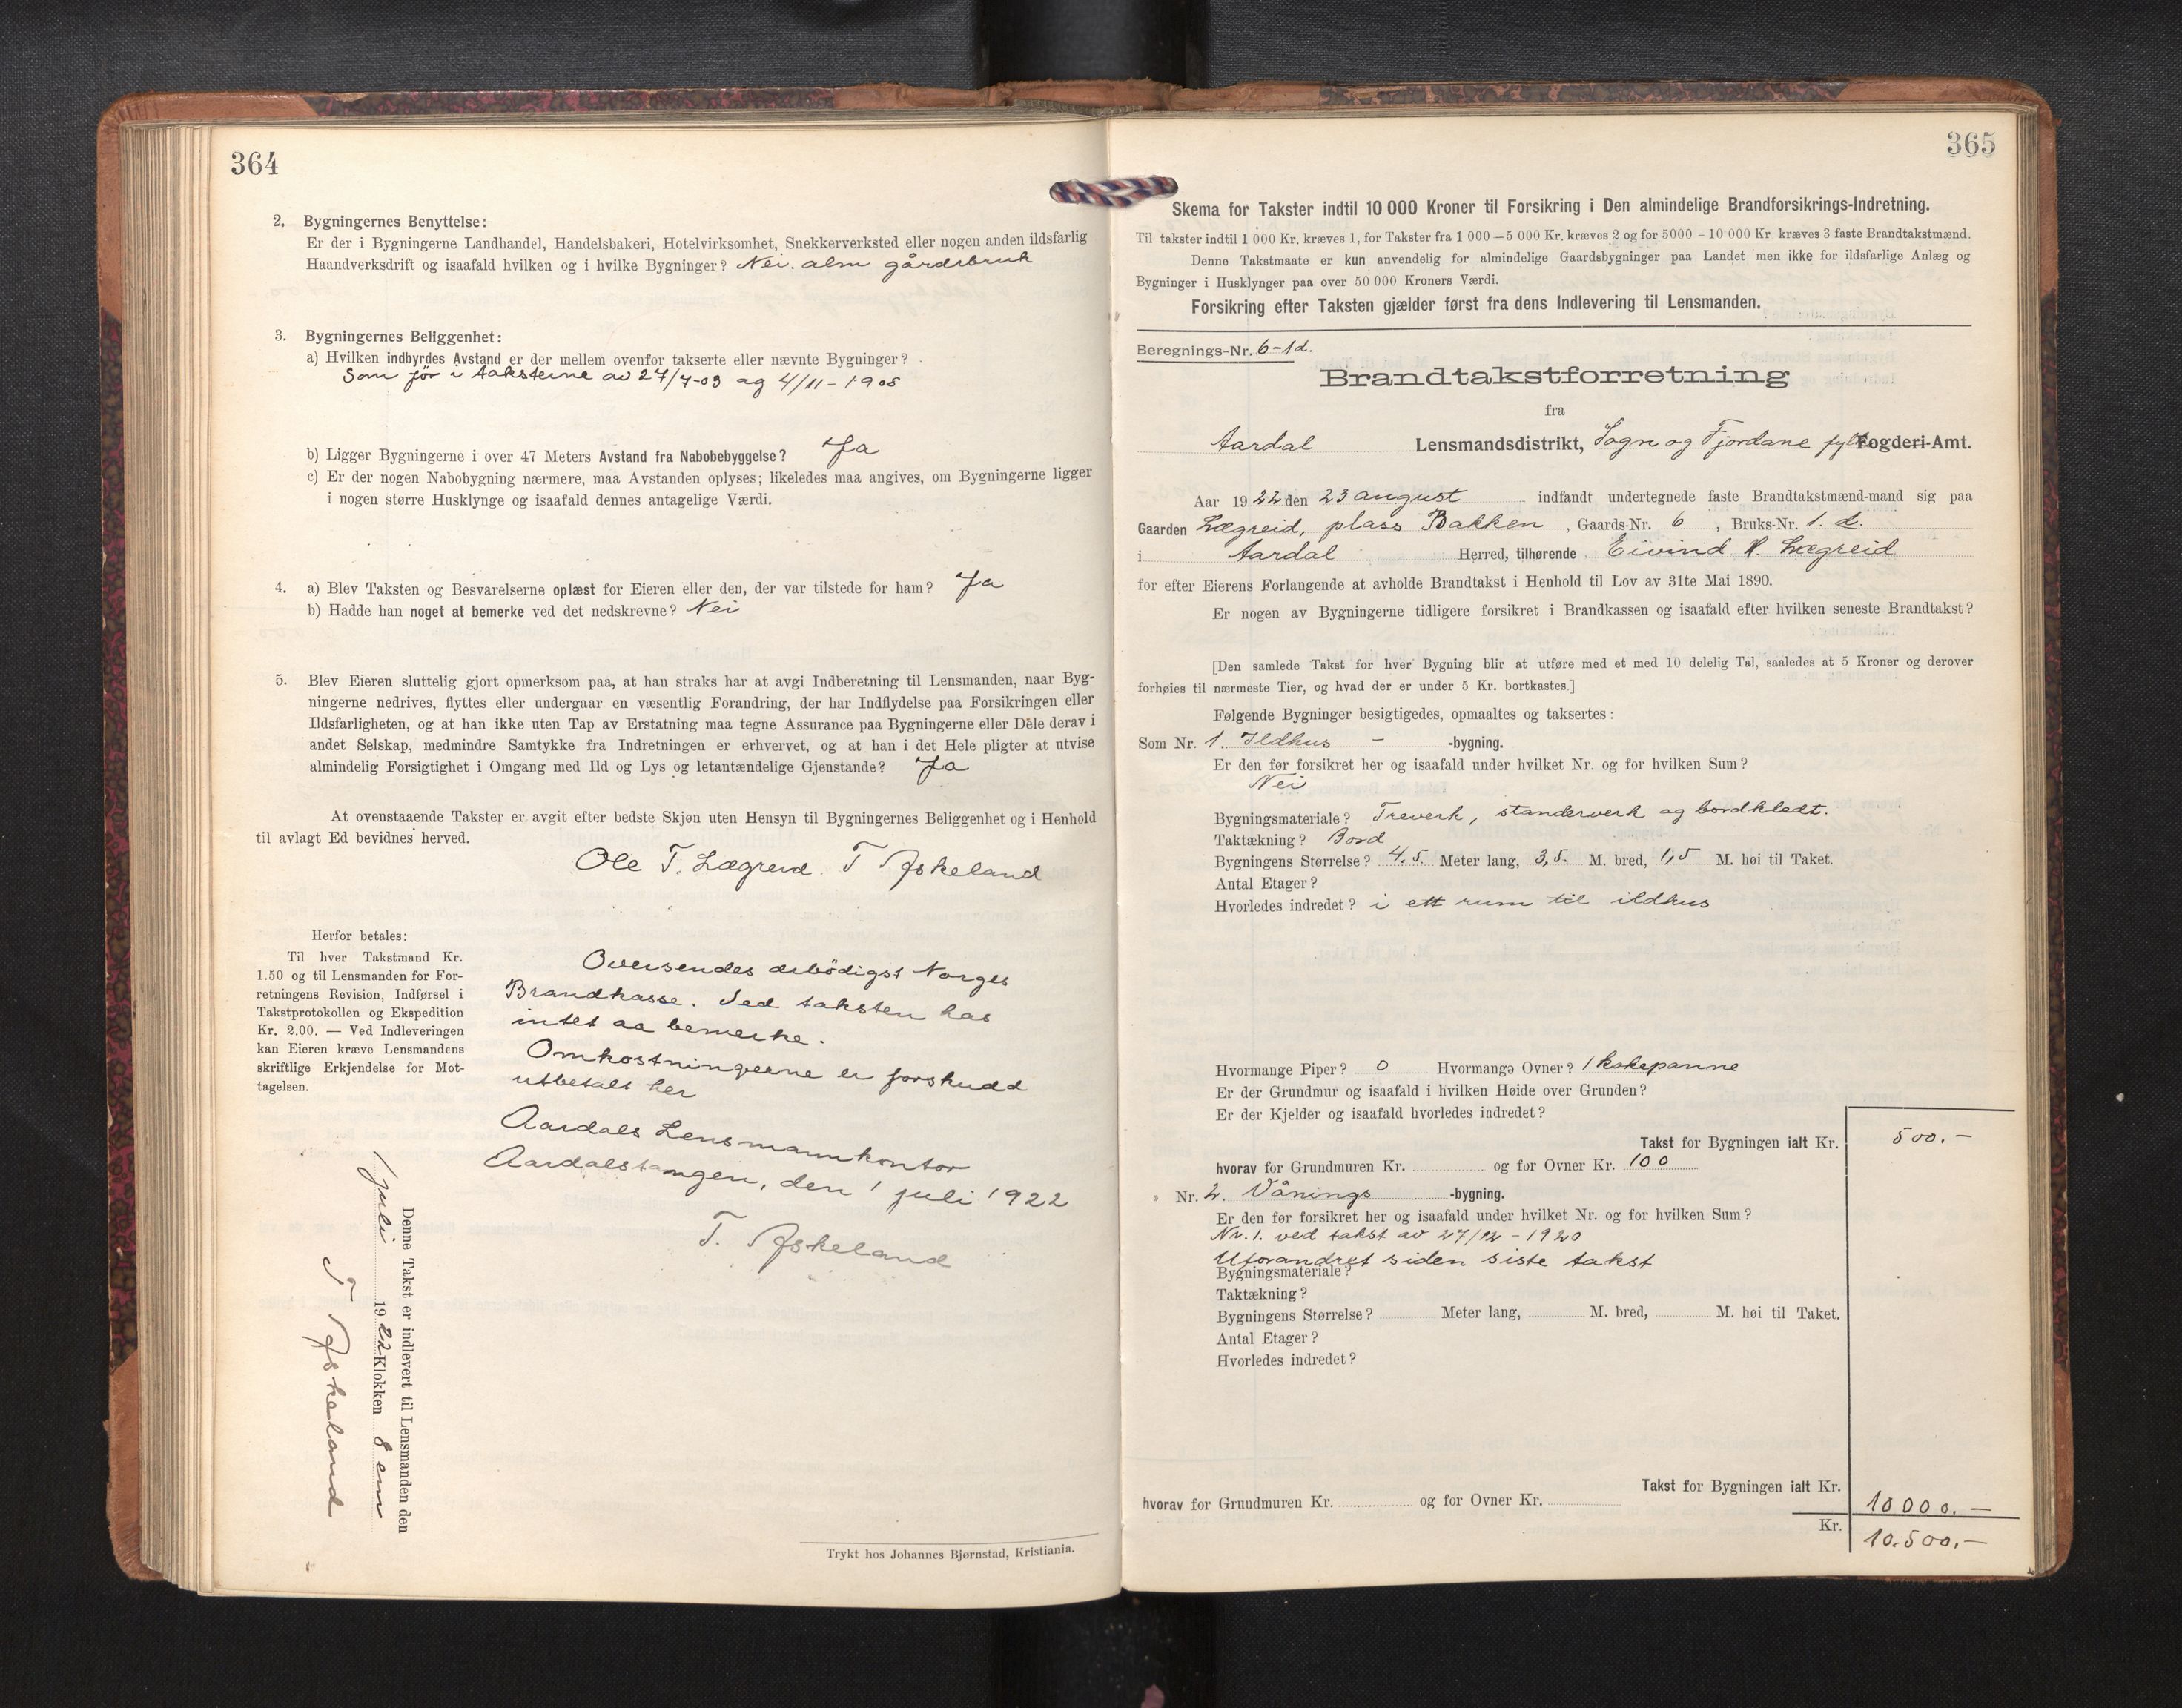 364
2. Bygningernes Benyttelse:
Er der i Bygningerne Landhandel, Handelsbakeri, Hotelvirksomhet, Snekkerverksted eller nogen anden ildsfarlig
Haandverksdrift og isaafald hvilken og i hvilke Bygninger? Nei. alm gårdsbruk
3. Bygningernes Beliggenhet:
a) Hvilken indbyrdes Avstand er der mellem ovenfor takserte eller nævnte Bygninger?
Som før i taksterne av 27/7-09 ag 4/11-1908
b) Ligger Bygningerne i over 47 Meters Avstand fra Nabobebyggelse? Ja
c) Er der nogen Nabobygning nærmere, maa Avstanden oplyses; likeledes maa angives, om Bygningerne ligger
i nogen større Husklynge og isaafald dennes antagelige Værdi.
4. a) Blev Taksten og Besvarelserne oplæst for Eieren eller den, der var tilstede for ham? Ja
b) Hadde han noget at bemerke ved det nedskrevne? Nei
5. Blev Eieren sluttelig gjort opmerksom paa, at han straks har at avgi Indberetning til Lensmanden, naar Byg-
ningerne nedrives, flyttes eller undergaar en væsentlig Forandring, der har Indflydelse paa Forsikringen eller
Ildsfarligheten, og at han ikke uten Tap av Erstatning maa tegne Assurance paa Bygningerne eller Dele derav i
andet Selskap, medmindre Samtykke fra Indretningen er erhvervet, og at han i det Hele pligter at utvise
almindelig Forsigtighet i Omgang med Ild og Lys og letantændelige Gjenstande? Ja
At ovenstaaende Takster er avgit efter bedste Skjøn uten Hensyn til Bygningernes Beliggenhet og i Henhold
til avlagt Ed bevidnes herved.
Ole T. Lægreid. T Askeland
Herfor betales:
Til hver Takstmand Kr.
1.50 og til Lensmanden for For-
retningens Revision, Indførsel i
Takstprotokollen og Ekspedition
Kr. 2.00. — Ved Indleveringen
kan Eieren kræve Lensmandens
skriftlige Erkjendelse for Mot-
tagelsen.
Oversendes ærbødigst Norges
Brandkasse. Ved taksten has
intet aa bemerke.
Omkostningerne er forskudd
utbetalt her
Aardals Lensmannkontor
Aardalstangen, den 1 juli 1922
T. Askeland
Denne Takst er indlevert til Lensmanden den
1 juli 1922 Klokken 8 em
T Askeland
Trykt hos Johannes Bjørnstad, Kristiania.
365
Skema for Takster indtil 10 000 Kroner til Forsikring i Den almindelige Brandforsikrings-Indretning.
Til takster indtil 1 000 Kr. kræves 1, for Takster fra 1 000 — 5 000 Kr. kræves 2 og for 5000 – 10 000 Kr. kræves 3 faste Brandtakstmænd.
Denne Takstmaate er kun anvendelig for almindelige Gaardsbygninger paa Landet men ikke for ildsfarlige Anlæg og
Bygninger i Husklynger paa over 50 000 Kroners Værdi.
Forsikring efter Taksten gjælder først fra dens Indlevering til Lensmanden.
Beregnings-Nr. 6-1d.
Brandtakstforretning
fra
Aardal Lensmandsdistrikt, Sogn og Fjordane fylke Fogderi-Amt.
Aar 1922 den 23 august indfandt undertegnede faste Brandtakstmænd-mand sig paa
Gaarden Lægreid, plass Bakken, Gaards-Nr. 6, Bruks-Nr. 1. d.
i Aardal Herred, tilhørende Eivind H. Lægreid
for efter Eierens Forlangende at avholde Brandtakst i Henhold til Lov av 31te Mai 1890.
Er nogen av Bygningerne tidligere forsikret i Brandkassen og isaafald efter hvilken seneste Brandtakst?
[Den samlede Takst for hver Bygning blir at utføre med et med 10 delelig Tal, saaledes at 5 Kroner og derover
forhøies til nærmeste Tier, og hvad der er under 5 Kr. bortkastes.]
Følgende Bygninger besigtigedes, opmaaltes og taksertes:
Som Nr. 1. Ildhus - -bygning.
Er den før forsikret her og isaafald under hvilket Nr. og for hvilken Sum?
Nei
Bygningsmateriale? Treverk, standerverk ag bordkledt.
Taktækning? Bord
Bygningens Størrelse? 4.5. Meter lang, 3,5. M. bred, 1,5 M. høi til Taket.
Antal Etager?
Hvorledes indredet? i ett rum til ildhus
Hvormange Piper? 0 Hvormange Ovner? 1 kokepanne
Er der Grundmur og isaafald i hvilken Høide over Grunden?
Er der Kjelder og isaafald hvorledes indredet?
Takst for Bygningen ialt Kr. 500.-
hvorav for Grundmuren Kr. og for Ovner Kr. 100
Nr. 2. Vånings -bygning.
Er den før forsikret her og isaafald under hvilket Nr. og for hvilken Sum?
Nr. 1. ved takst av 27/12-1920
Uforandret siden siste takst
Bygningsmateriale?
Taktækning?
Bygningens Størrelse? Meter lang, M. bred, M. høi til Taket.
Antal Etager?
Hvorledes indredet?
Takst for Bygningen ialt Kr.
hvorav for Grundmuren Kr. og for Ovner Kr. 10000.-
Kr. 10.500.-